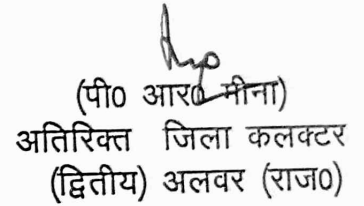 (पी0 आर0 मीना)
अतिरिक्त जिला कलक्टर
(द्वितीय) अलवर (राज0)